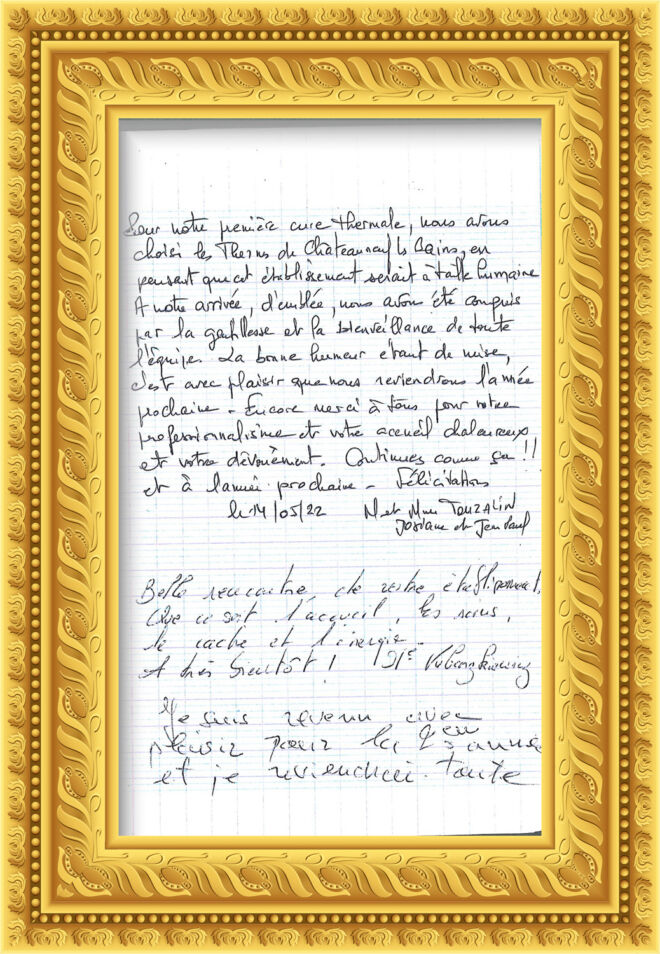 Pour notre première cure thermale, nous avons
choisi les Thermes de Chateauneuf les Bains, en
pensant que cet établissement serait à taille humaine
A notre arrivée, d'emblée, nous avons été conquis
par la gentillesse et la bienveillance de toute
l'équipe. La bonne humeur étant de mise,
c'est avec plaisir que nous reviendrons l'année
prochaine - Encore merci à tous pour votre
professionnalisme et votre accueil chaleureux
et votre dévouement. Continuez comme ça !!
et à l'année prochaine - Félicitations
le 14/05/22 M et Mme TOUZALIN
Josiane et Jean Paul
Belle rencontre de votre établissement,
Que ce soit l'accueil, les soins,
le cadre et l'énergie.
A très bientôt !
Je suis revenu avec
plaisir pour la 2eme année
et je reviendrai toute